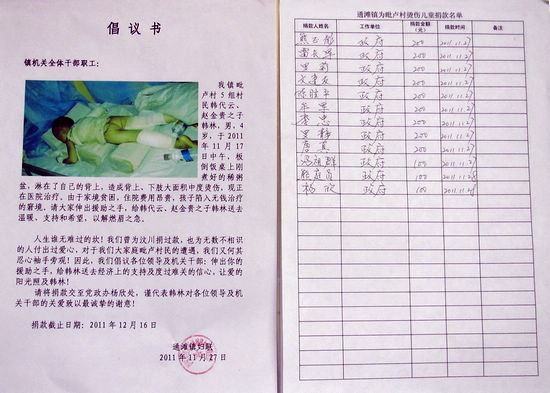 倡议书
镇机关全体干部职工：
我镇毗
卢村5组村
民韩代云、
赵金贵之子
韩林，男，4
岁，于2011
年11月17
日中午，板
倒饭桌上刚
煮好的稀粥
盆，淋在了自己的背上，造成背上、下肢大面积中度烫伤，现正
在医院治疗。由于家境贫困，住院费用昂贵，孩子陷入无钱治疗
的窘境。请大家伸出援助之手，给韩代云、赵金贵之子韩林送去
温暖、支持和希望，以解燃眉之急。
人生谁无难过的坎！我们曾为汶川捐过款，也为无数不相识
的人付出过爱心，对于我们大家庭毗卢村民的遭遇，我们又何其
忍心袖手旁观！因此，我们倡议各位领导及机关干部：伸出你的
援助之手，给韩林送去经济上的支持及度过难关的信心，让爱的
阳光照及韩林！
请将捐款交至党政办杨欣处，谨代表韩林对各位领导及机
关干部的关爱致以最诚挚的谢意！
捐款截止日期：2011年12月16日
通滩镇妇联
2011年11月27日
通滩镇为毗卢村烫伤儿童捐款名单
捐款人姓名 工作单位 捐款金额（元） 捐款时间 备注
政府 200 2011.11.27
政府 200 2011.11.27
政府 200 2011.11.27
政府 200 2011.11.27
政府 200 2011.11.27
政府 200 2011.11.27
李忠 政府 200 2011.11.27
政府 200 2011.11.27
政府 200 2011.11.27
政府 100 2011.11.27
政府 100 2011.11.28
杨欣 政府 100 2011.11.